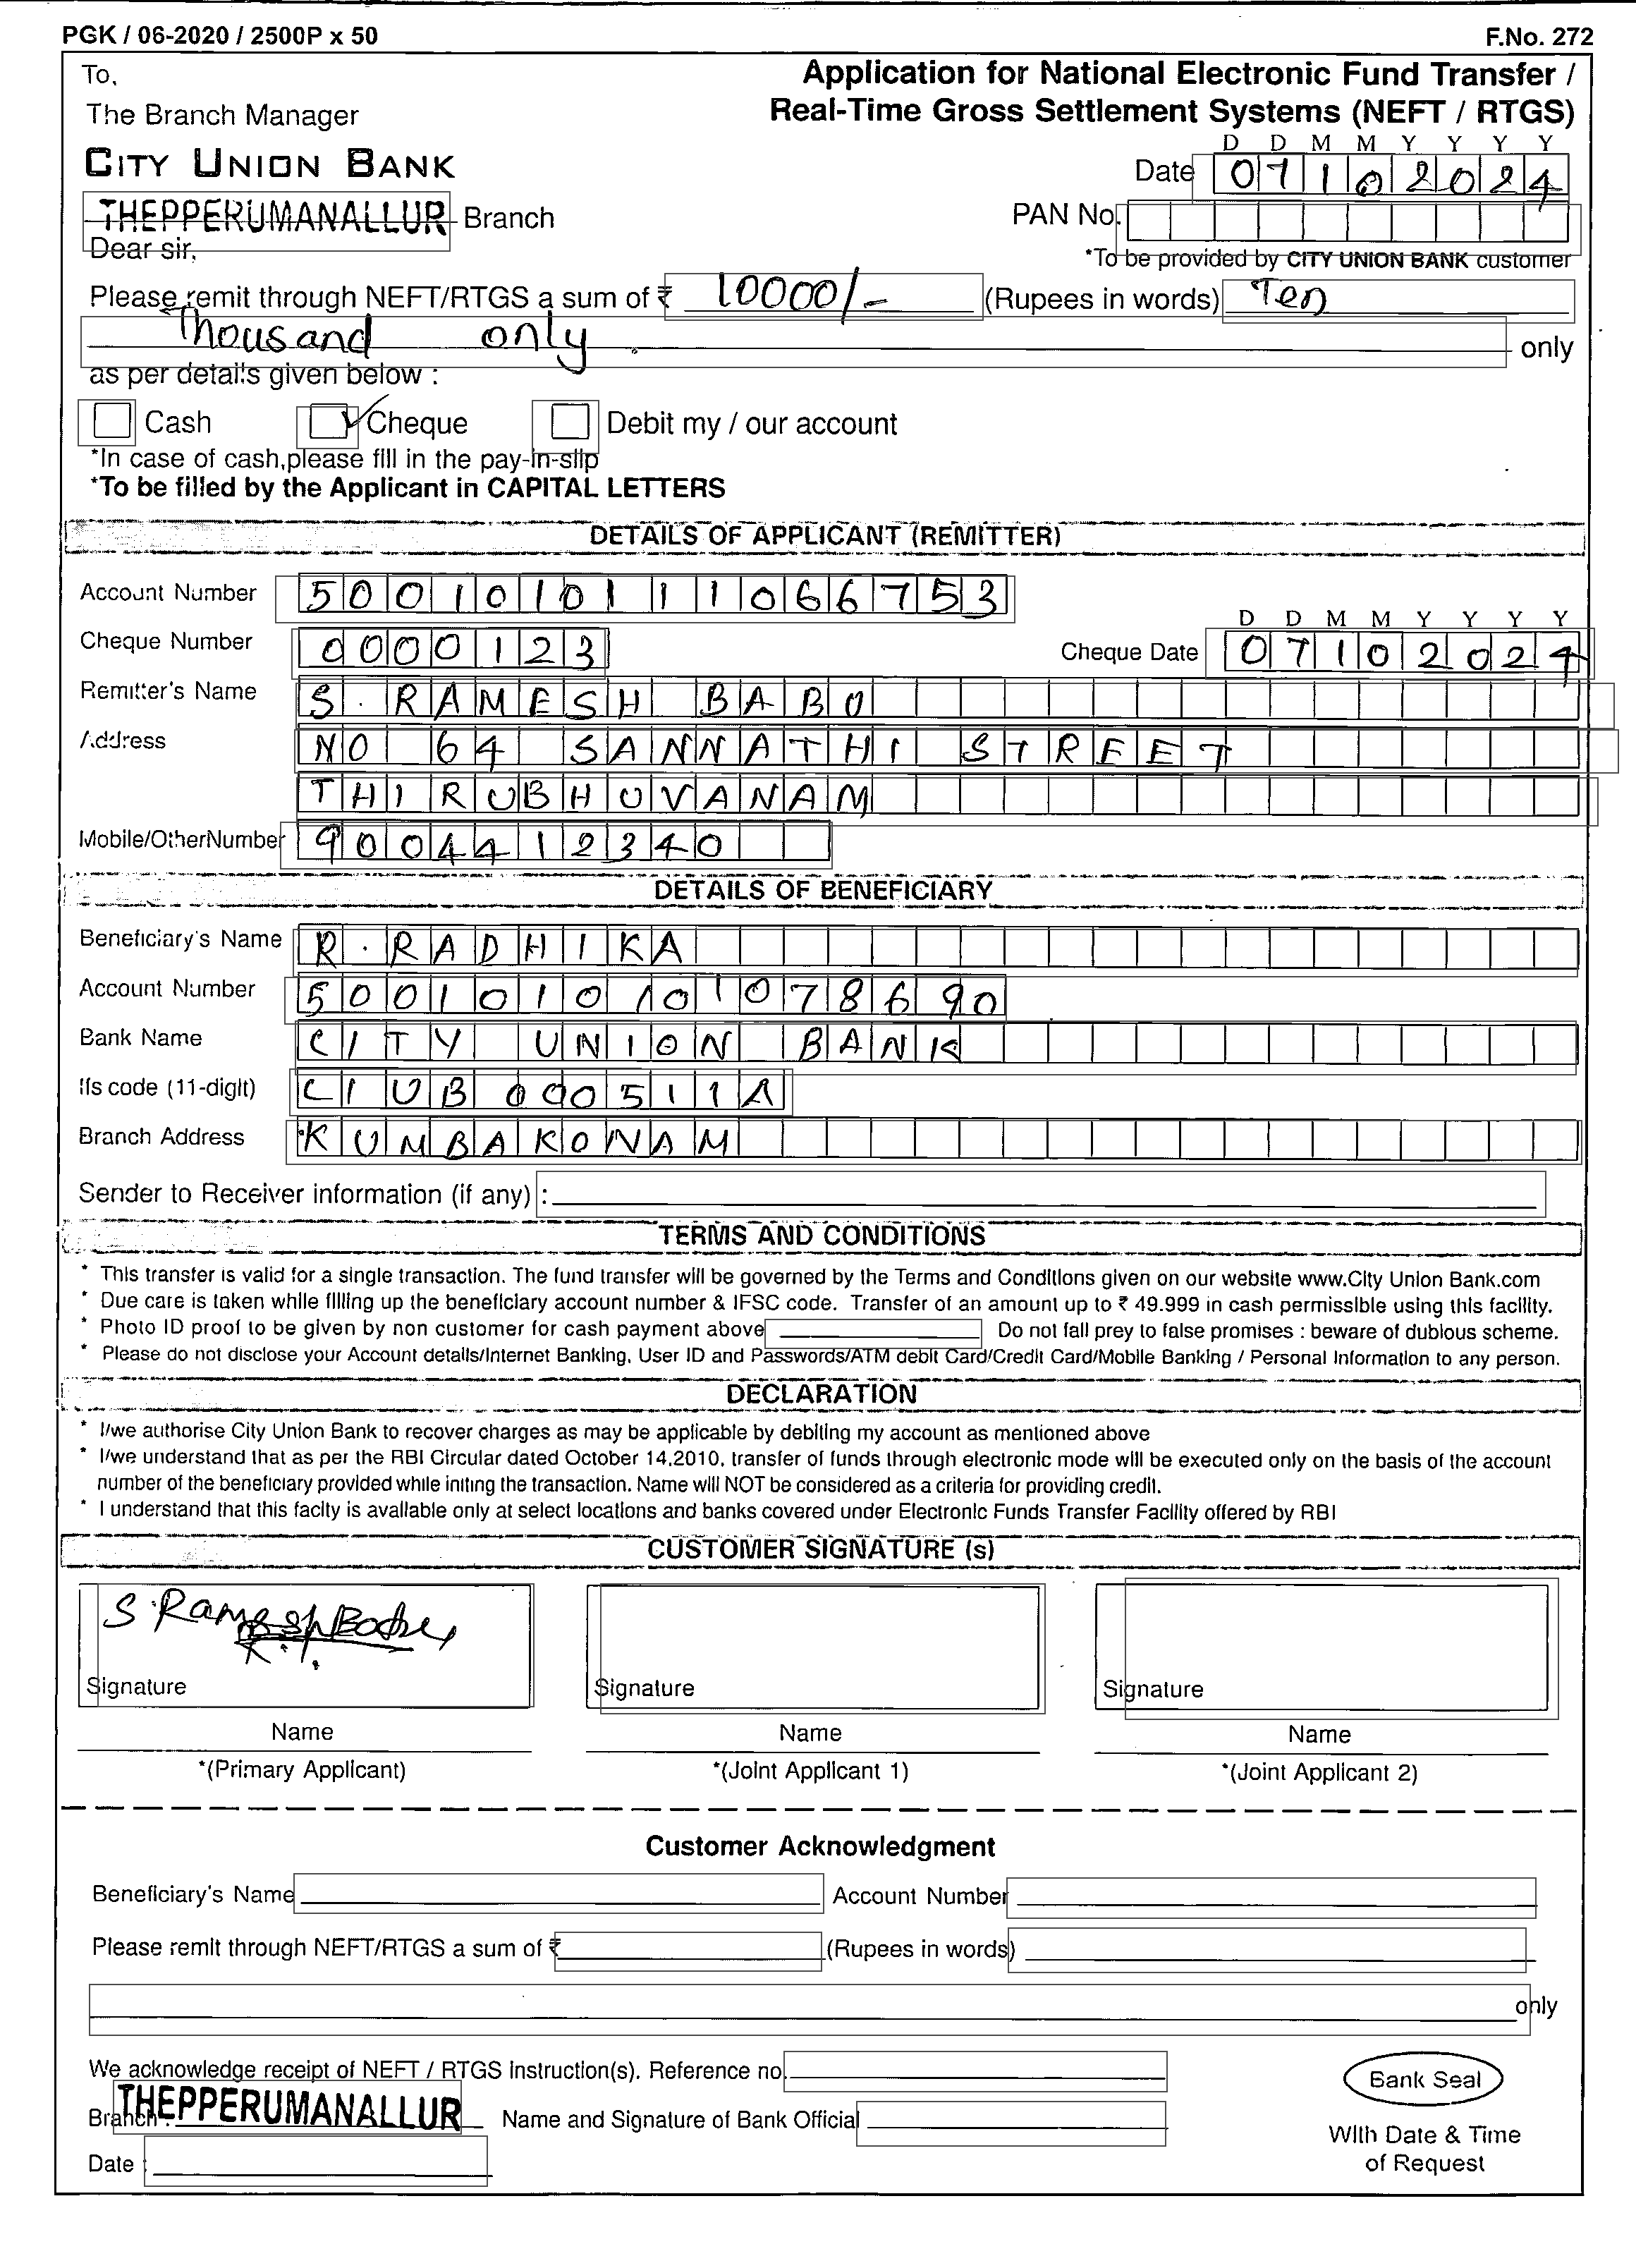 PGK / 06-2020 / 2500P x 50 F.No. 272
To,
Application for National Electronic Fund Transfer /
The Branch Manager
Real-Time Gross Settlement Systems (NEFT / RTGS)
CITY UNION BANK
D D M M Y Y Y Y
Date 07102024
THEPPERUMANALLUR Branch
PAN No.
Dear sir,
*To be provided by CITY UNION BANK customer
Please remit through NEFT/RTGS a sum of ₹ 10000/- (Rupees in words) Ten
Thousand only only
as per details given below :
Cash Cheque Debit my / our account
*In case of cash,please fill in the pay-in-slip
*To be filled by the Applicant in CAPITAL LETTERS
DETAILS OF APPLICANT (REMITTER)
Account Number 5001010111066753
D D M M Y Y Y Y
Cheque Number 0000123 Cheque Date 07102024
Remitter's Name S. RAMESH BABU
Address NO 64 SANNATHI STREET
THIRUBHUVANAM
Mobile/OtherNumber 9004412340
DETAILS OF BENEFICIARY
Beneficiary's Name R. RADHIKA
Account Number 5001010101078690
Bank Name CITY UNION BANK
Ifs code (11-digit) CIUB000511A
Branch Address KUMBAKONAM
Sender to Receiver information (if any) :
TERMS AND CONDITIONS
* This transfer is valid for a single transaction. The fund transfer will be governed by the Terms and Conditions given on our website www.City Union Bank.com
* Due care is taken while filling up the beneficiary account number & IFSC code. Transfer of an amount up to ₹ 49.999 in cash permissible using this facility.
* Photo ID proof to be given by non customer for cash payment above Do not fall prey to false promises : beware of dubious scheme.
* Please do not disclose your Account details/Internet Banking, User ID and Passwords/ATM debit Card/Credit Card/Mobile Banking / Personal Information to any person.
DECLARATION
* I/we authorise City Union Bank to recover charges as may be applicable by debiting my account as mentioned above
* I/we understand that as per the RBI Circular dated October 14,2010, transfer of funds through electronic mode will be executed only on the basis of the account
number of the beneficiary provided while initing the transaction. Name will NOT be considered as a criteria for providing credit.
* I understand that this faclty is available only at select locations and banks covered under Electronic Funds Transfer Facility offered by RBI
CUSTOMER SIGNATURE (s)
S Ramesh Babu
Signature Signature Signature
Name Name Name
*(Primary Applicant) *(Joint Applicant 1) *(Joint Applicant 2)
Customer Acknowledgment
Beneficiary's Name Account Number
Please remit through NEFT/RTGS a sum of ₹ (Rupees in words)
only
We acknowledge receipt of NEFT / RTGS instruction(s). Reference no.
Bank Seal
Branch : THEPPERUMANALLUR Name and Signature of Bank Official
With Date & Time
Date :
of Request